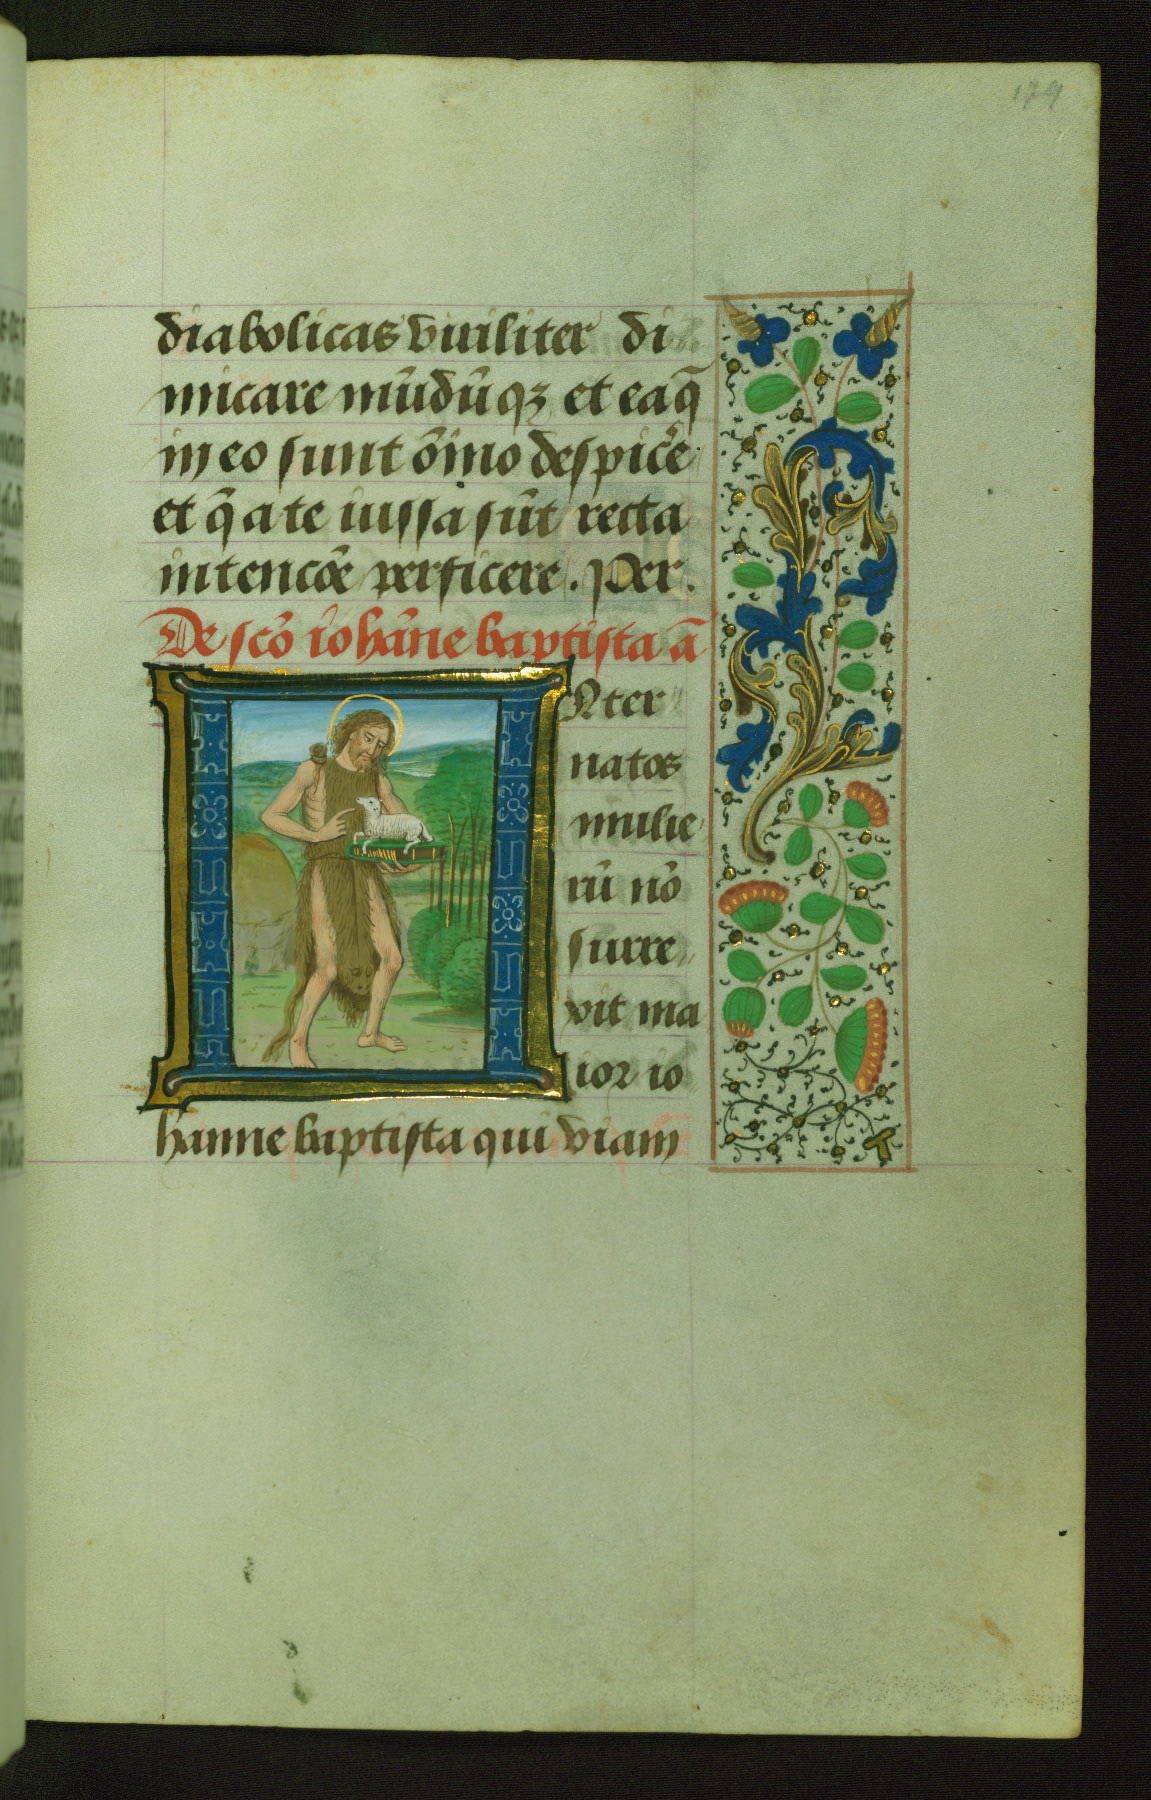 179
diabolicas viriliter di
micare mūdūqꝫ et eaq̄
in eo sunt ōīno despic̄e
et q̄ a te iussa sūt recta
intencōe perficere. Per.
De scō ioħāne baptista ā
Nter
natos
mulie
rū nō
surre
xit ma
ior io
hanne baptista qui viam